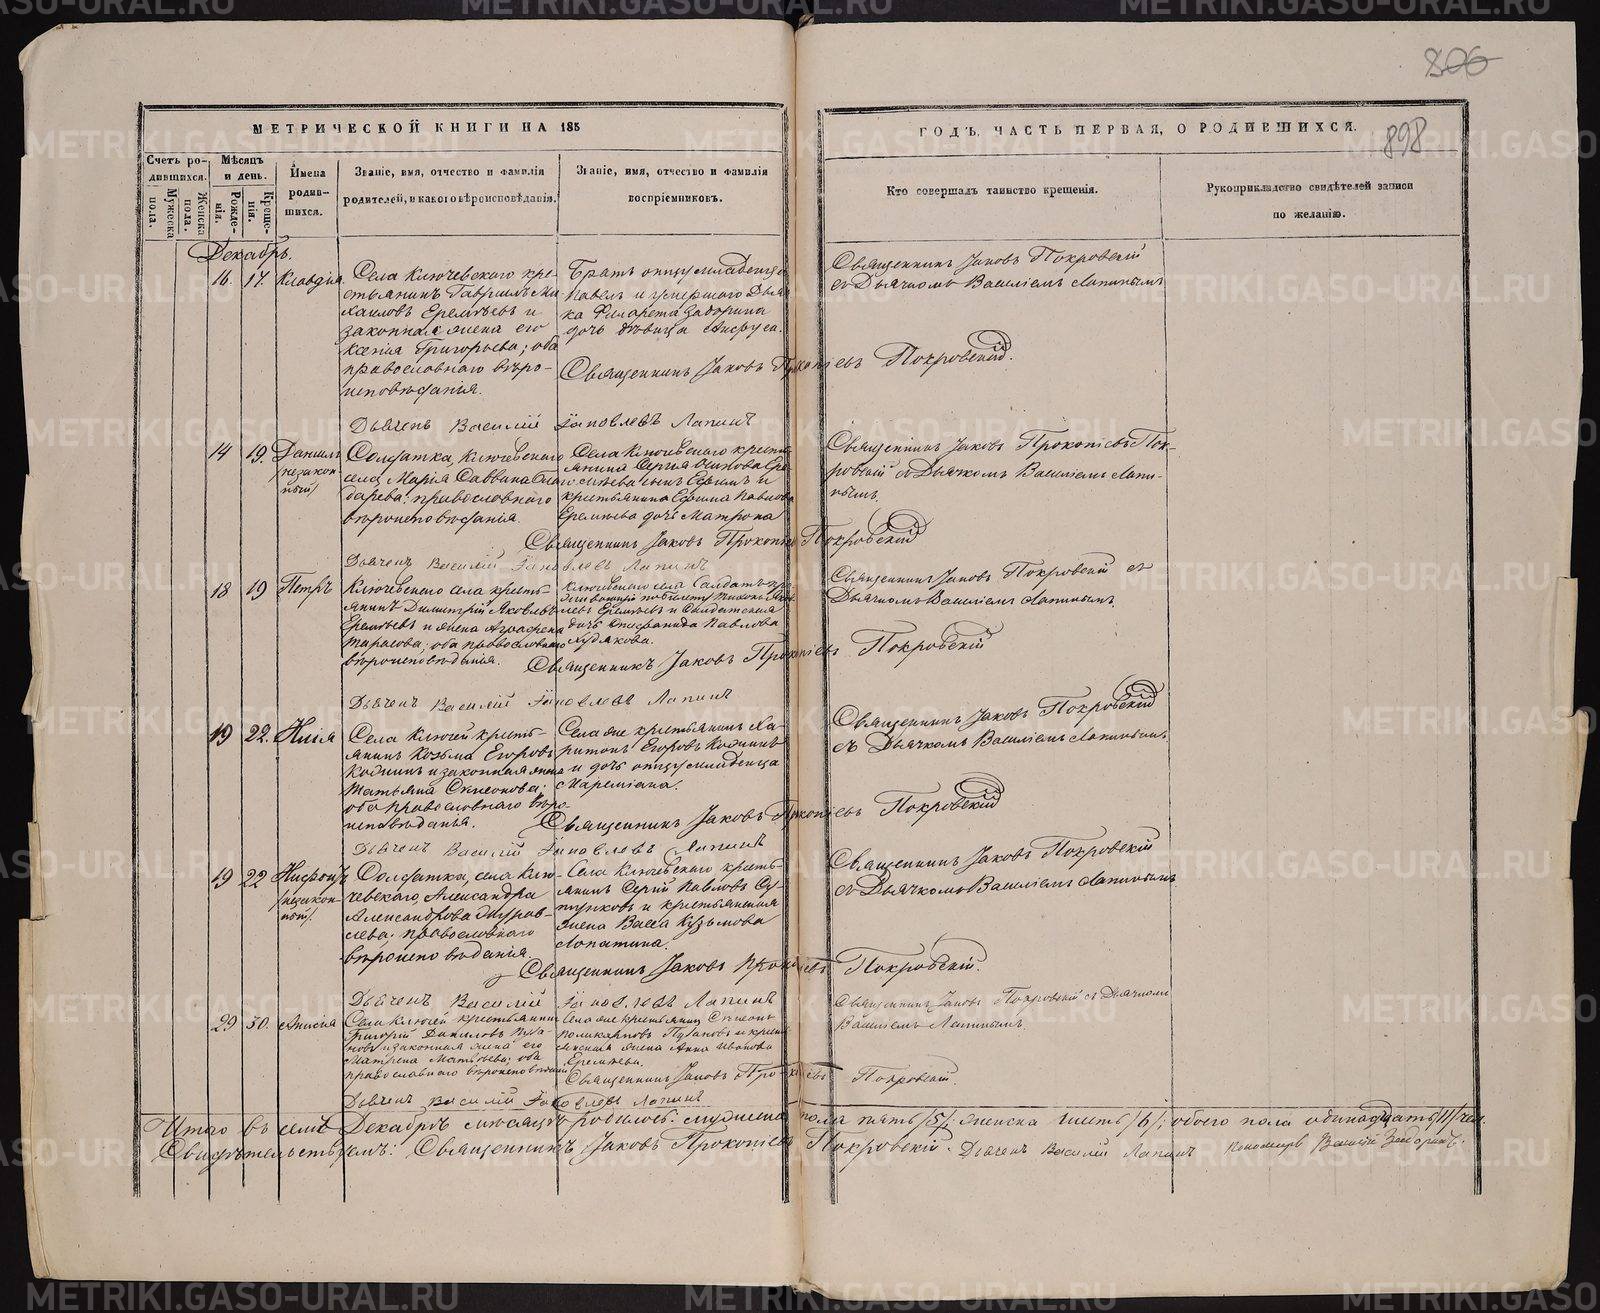 806
МЕТРИЧЕСКОЙ КНИГИ НА 185
ГОДЪ, ЧАСТЬ ПЕРВАЯ, О РОДИВШИХСЯ.
898
Счетъ ро-
дившихся.
Мужеска
пола.
Женска
пола.
Мѣсяцъ
и день.
Рожде-
нія.
Креще-
нія.
Имена
родив-
шихся.
Званіе, имя, отчество и фамилія
родителей, и какого вѣроисповѣданія.
Званіе, имя, отчество и фамилія
воспріемниковъ.
Кто совершалъ таинство крещенія.
Рукоприкладство свидѣтелей записи
по желанію.
Декабрь.
16. 17. Клавдія
Села Ключевского кре-
стьянинъ Гавріилъ Ми-
хаиловъ Еремѣевъ и
законная жена его
Ксенія Григорьева; оба
православнаго вѣро-
исповѣданія.
Братъ отцу младенца
Павелъ и умершаго Дья-
ка Филарета Задорина
дочь дѣвица
Священникъ Іаковъ Покровскій
съ Дьячкомъ Василіемъ Лапинымъ
Священникъ Іаковъ Прокопіевъ Покровскій.
Дьячекъ Василій Яковлевъ Лапинъ
14 19. Даніилъ
/незакон-
ный/
Солдатка, Ключевскаго
села Марія Саввина
православнаго
вѣроисповѣданія.
Села Ключевскаго кресть-
янина Сергія Осипова Ере-
мѣева сынъ Ефимъ и
крестьянина Ефима Павлова
Еремѣева дочь Матрона
Священникъ Іаковъ Прокопіевъ Пок-
ровскій съ Дьячкомъ Василіемъ Лапи-
нымъ.
Священникъ Іаковъ Прокопіевъ Покровскій
Дьячекъ Василій Яковлевъ Лапинъ
18 19 Петръ
Ключевскаго села кресть-
янинъ Димитрій Яковлевъ
Еремѣевъ и жена Аграфена
Тарасова, оба православнаго
вѣроисповѣданія.
Ключевскаго села Солдатъ про-
живающій по билету Тихонъ Яков-
левъ Еремѣевъ и Солдатская
дочь Епифанида Павлова
Худякова.
Священникъ Іаковъ Покровскій съ
Дьячкомъ Василіемъ Лапинымъ.
Священникъ Іаковъ Прокопіевъ Покровскій
Дьячекъ Василій Яковлевъ Лапинъ
19 22.
Села Ключей кресть-
янинъ Козьма Егоровъ
и законная жена
Татьяна Симеонова;
оба православнаго вѣро-
исповѣданія.
Села же крестьянинъ Ха-
ритонъ Егоровъ
и дочь отцу младенца
Священникъ Іаковъ Покровскій
съ Дьячкомъ Василіемъ Лапинымъ
Священникъ Іаковъ Прокопіевъ Покровскій
Дьячекъ Василій Яковлевъ Лапинъ
19 22 Нифонтъ
/незакон-
ный/.
Солдатка, села Клю-
чевскаго, Александра
Александрова Журав-
лева. православнаго
вѣроисповѣданія.
Села Ключевскаго кресть-
янинъ Сергій Павловъ
и крестьянская
жена Васса Кузьмова
Лопатина.
Священникъ Іаковъ Покровскій
съ Дьячкомъ Василіемъ Лапинымъ
Священникъ Іаковъ Прокопіевъ Покровскій.
Дьячекъ Василій Яковлевъ Лапинъ
29 30. Анисія
Села Ключей крестьянинъ
Григорій Даниловъ
и законная жена его
Матрена Матвѣева; оба
православнаго вѣроисповѣданія
Села же крестьянинъ Симеонъ
Поликарповъ и крест-
янская жена Анна Иванова
Еремѣева.
Священникъ Іаковъ Покровскій съ Дьячкомъ
Василіемъ Лапинымъ.
Священникъ Іаковъ Прокопіевъ Покровскій.
Дьячекъ Василій Яковлевъ Лапинъ
Итого въ семъ Декабрѣ мѣсяцѣ родилось: мужеска пола пять /5/; женска шесть /6/; обоего пола одинадцать /11/ чел.
Свидѣтельствуемъ: Священникъ Іаковъ Прокопіевъ Покровскій. Дьячекъ Василій Лапинъ Пономарь Василій Задоринъ.
METRIKI.GASO-URAL.RU